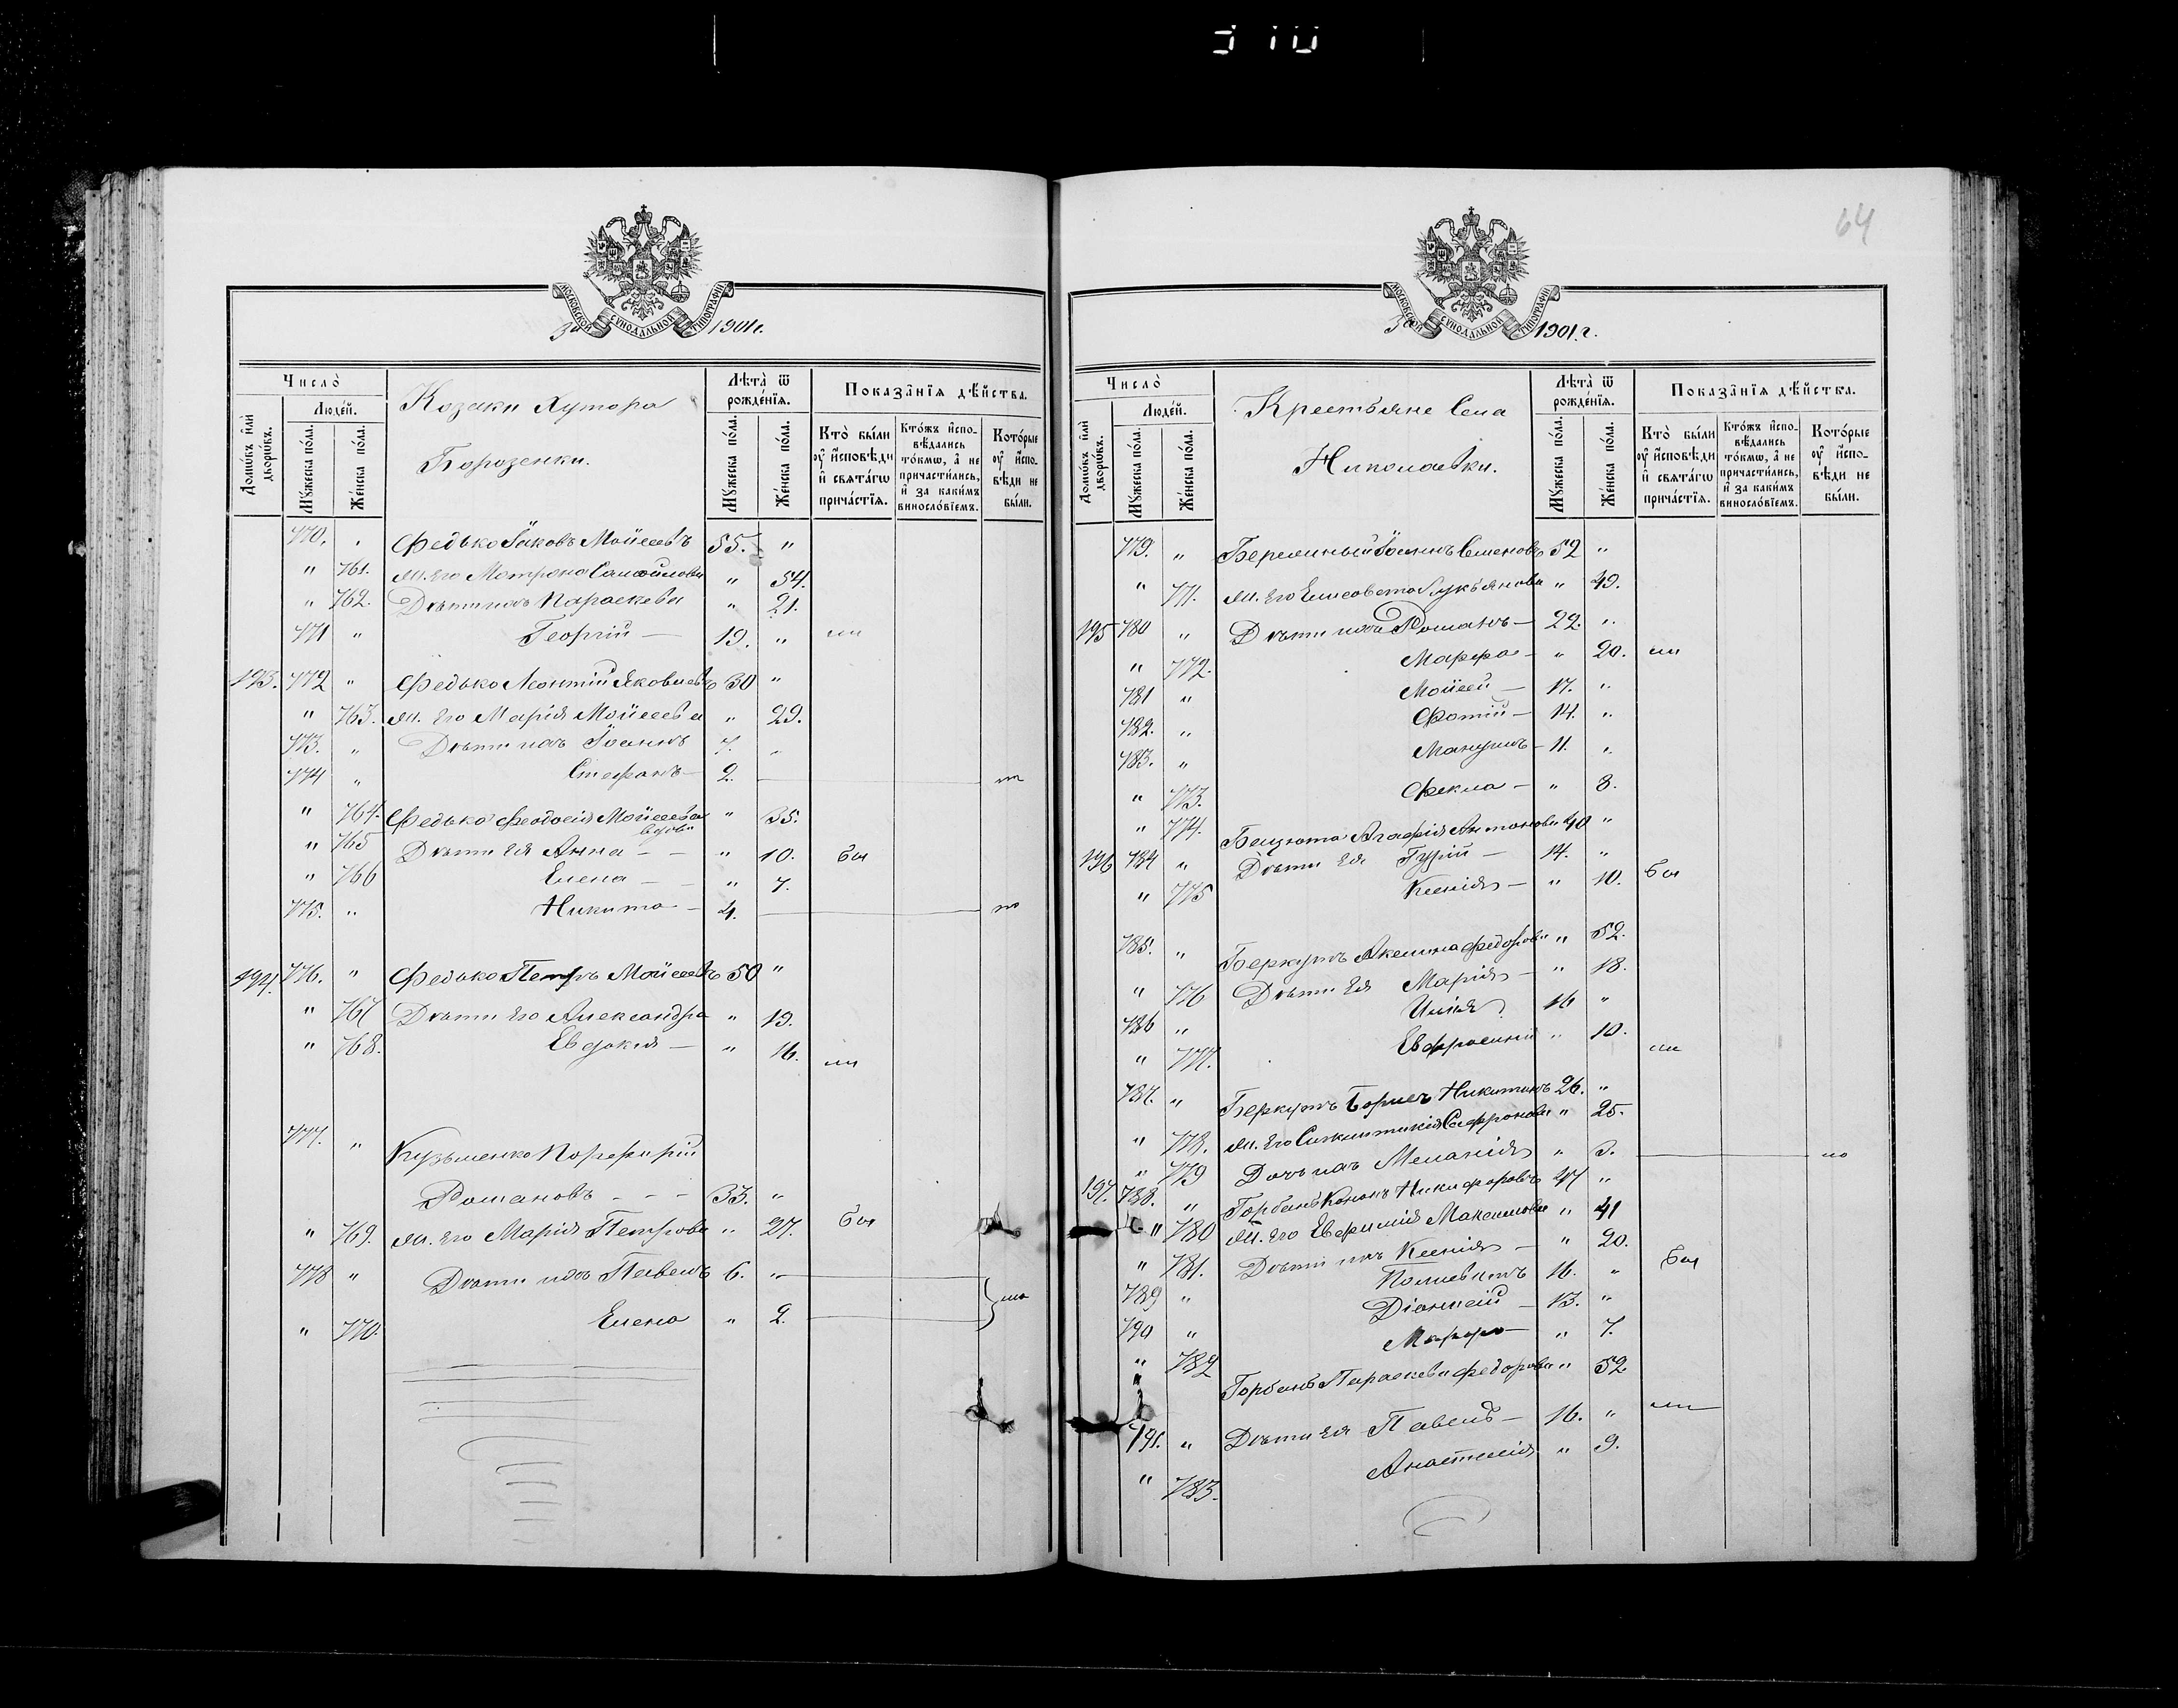 310
МОСКОВСКОЙ СѴНОДАЛЬНОЙ ТИПОГРАФІИ
За 1901 г.
Число̀
Домѡ́въ и҆лѝ дворѡ́въ.
Люде́й.
Мꙋ́жеска по́ла.
Же́нска по́ла.
Козаки Хутора
Борозенки.
Лѣта̀ ѿ рожде́нїѧ.
Мꙋ́жеска по́ла.
Же́нска по́ла.
Показа̑нїѧ дѣ́йства.
Кто̀ бы́ли ᲂу҆ и҆сповѣ́ди и҆ свѧта́гѡ прича́стїѧ.
Кто́жъ и҆спо- вѣ́дались то́кмѡ, а҆ не причасти́лись, и҆ за каки́мъ винослóвїемъ.
Кото́рые ᲂу҆ и҆спо- вѣ́ди не бы́ли.
770. „ Федько Іаковъ Моисеевъ 55. „
„ 761. Ж. его Матрона Самойлова „ 54.
„ 762. Дѣти ихъ Параскева „ 21.
771 „ Георгій — 19. „
193. 772 „ Федько Леонтій Яковлевъ 30 „
„ 763. Ж. его Марія Моисеева „ 29.
773. „ Дѣти ихъ Іоаннъ 7. „
774 „ Стефанъ — 2.
„ 764. Федько Феодосія Моисеева вдова „ 35.
„ 765 Дѣти ея Анна — — „ 10. был
„ 766 Елена — — „ 7.
775. „ Никита — 4.
194. 776. „ Федько Петръ Моисеевъ 50 „
„ 767 Дѣти его Александра „ 19.
„ 768. Евдокія — „ 16.
777. „ Кузьменко Порфирій
Романовъ - - - 33. „
„ 769. Ж. его Марія Петрова „ 27. был
778 „ Дѣти ихъ Павелъ 6. „
„ 770. Елена „ 2.
64
МОСКОВСКОЙ СѴНОДАЛЬНОЙ ТИПОГРАФІИ
За 1901 г.
Число̀
Домѡ́въ и҆лѝ дворѡ́въ.
Люде́й.
Мꙋ́жеска по́ла.
Же́нска по́ла.
Крестьяне Села
Николаевки.
Лѣта̀ ѿ рожде́нїѧ.
Мꙋ́жеска по́ла.
Же́нска по́ла.
Показа̑нїѧ дѣ́йства.
Кто̀ бы́ли ᲂу҆ и҆сповѣ́ди и҆ свѧта́гѡ прича́стїѧ.
Кто́жъ и҆спо- вѣ́дались то́кмѡ, а҆ не причасти́лись, и҆ за каки́мъ винослóвїемъ.
Кото́рые ᲂу҆ и҆спо- вѣ́ди не бы́ли.
779. „ Іоаннъ Семеновъ 52 „
„ 771. Ж. его Елисавета Лукьянова „ 49.
195 780 „ Дѣти ихъ Романъ — 22. „
„ 772. Марфа — „ 20.
781 „ Моисей — 17. „
782. „ Фотий — 14. „
783. „ Мануилъ — 11. „
„ 773. Фекла — „ 8.
„ 774. Агафія Антонова 40 „
196 784 „ Дѣти ея Гурій — 14. „
„ 775 Ксенія — „ 10. был
785. „ Беркутъ Акилина Федорова „ 52.
„ 776 Дѣти ея Марія — „ 18.
786 „ Илія 16 „
„ 777. Евфросинія „ 10.
787. „ Беркутъ Борисъ Никитинъ 26. „
„ 778. Ж. его Синклитикія Сафронова „ 25.
„ 779 Дочь ихъ Меланія „ 3.
197. 788. „ Горбань Кононъ Никифоровъ 47 „
„ 780 Ж. его Евфимія Максимова „ 41
„ 781. Дѣти ихъ Ксенія — „ 20.
789 „ Поліевктъ 16. „ был
790 „ Діонисій — 13. „
„ 782 Марфа — „ 7.
„ Горбань Параскева Федорова „ 52
791. „ Дѣти ея Павелъ — 16. „
„ 783. Анастасія „ 9.